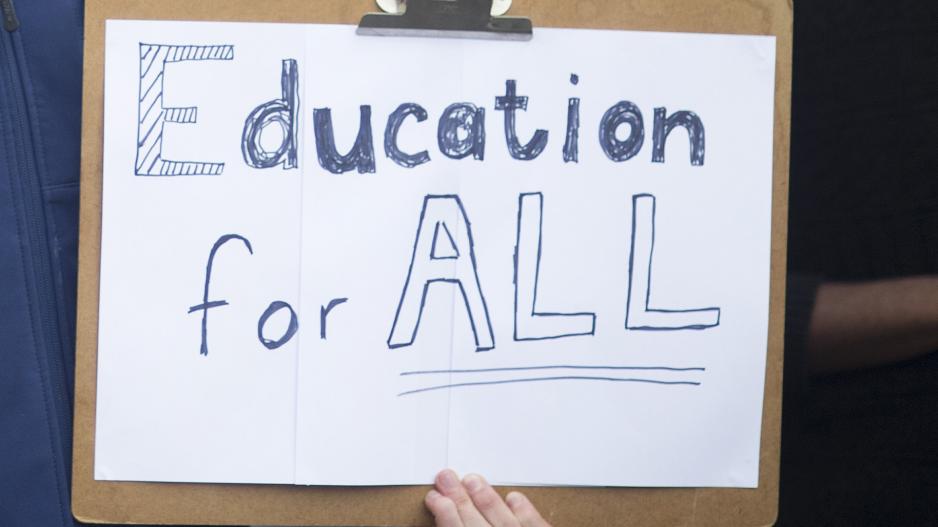 Education
for ALL